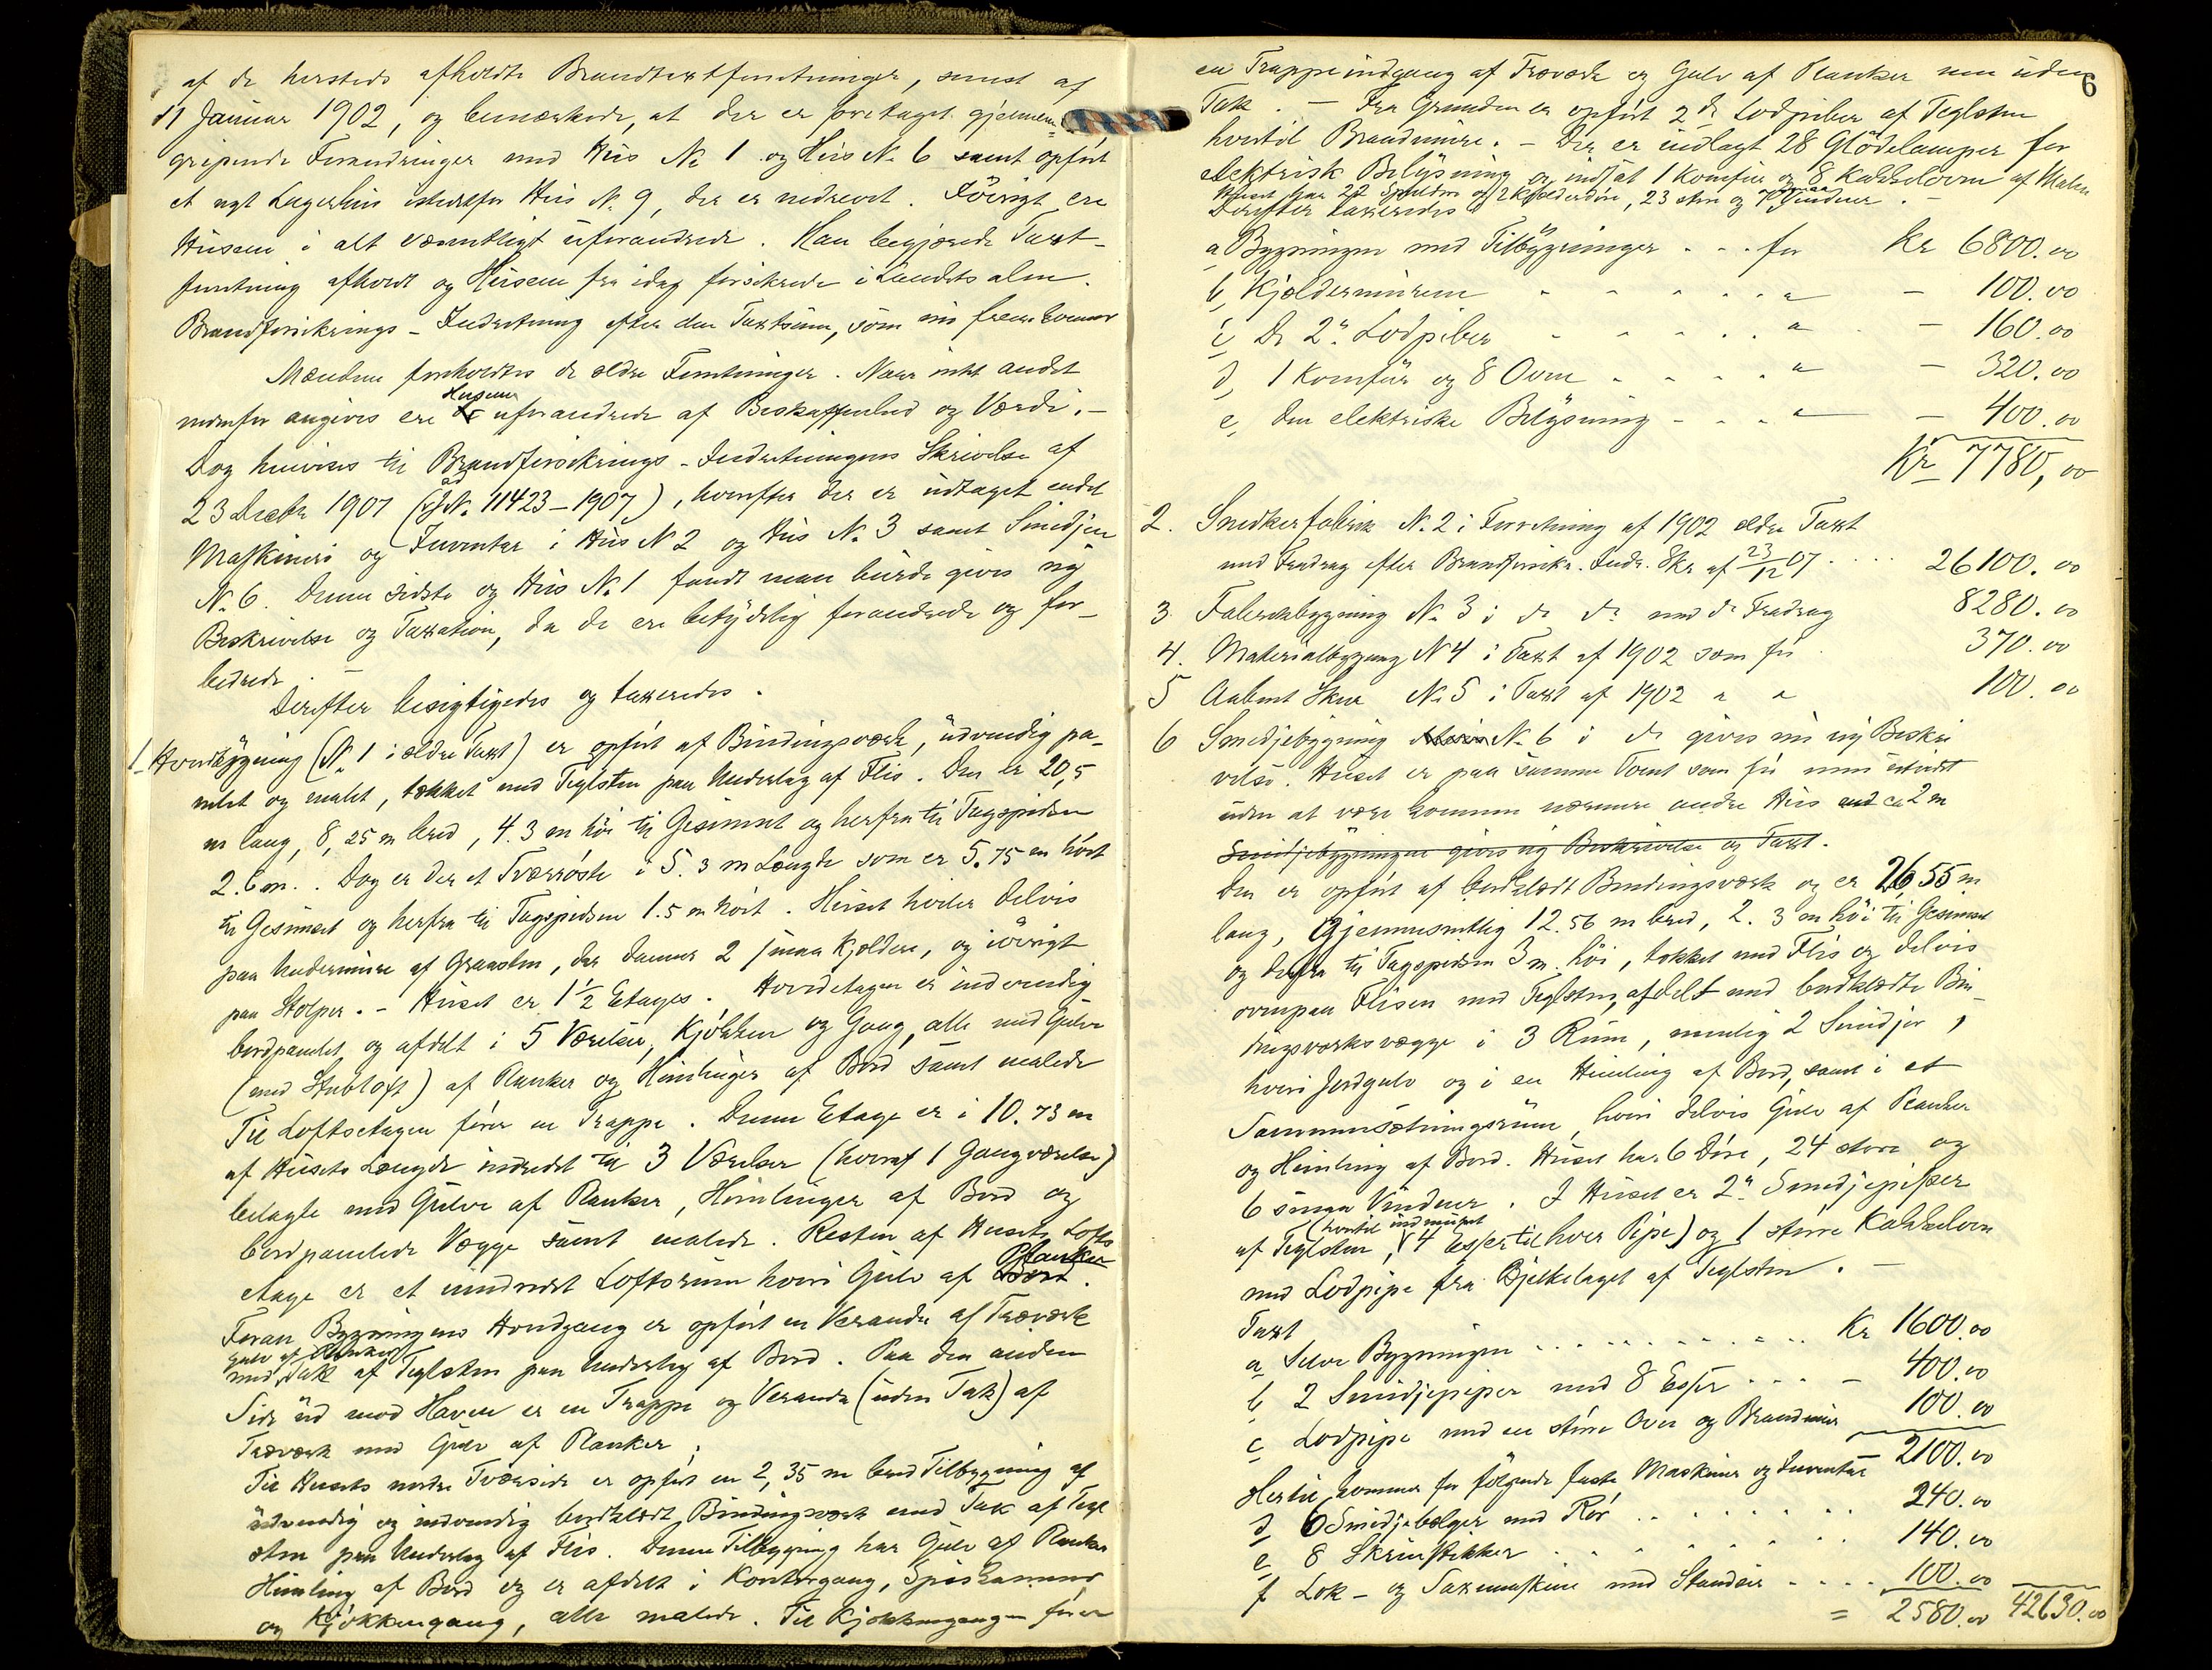 af de hersteds afholdte Brandtaxtforretninger, senest af
11 Januar 1902, og bemærkede, at der er foretaget gjennem=
gribende Forandringer med Hus No 1 og Hus No 6 samt opført
et nyt Lagerhus istedetfor Hus No 9, der er nedrevet. Iøvrigt ere
Husene i alt væsentligt uforandrede. Han begjærede Taxt-
forretning afholdt og Husene fra idag forsikrede i Landets alm.
Brandforsikrings-Indretning efter den Taxtsum, som nu fremkommer
Mændene foreholdtes de ældre Forretninger. Naar intet andet
nedenfor angives ere Husene uforandrede af Beskaffenhed og Værdi.-
Dog henvises til Brandforsikrings-Indretningens Skrivelse af
23 Decbr 1907 (J.No. 11423-1907), hvorefter der er udtaget endel
Maskineri og Inventar i Hus No 2 og Hus No. 3 samt Smedjen
No. 6. Denne sidste og Hus No. 1 fandt man burde gives ny
Beskrivelse og Taxation, da de ere betydelig forandrede og for-
bedrede. -
Derefter besigtigedes og taxeredes.
1. Hovedbygning (No. 1 i ældre Taxt) er opført af Bindingsværk, udvendig pa-
nelet og malet, tækket med Teglsten paa Underlag af Flis. Den er 20,5
m lang, 8,25 m bred, 4.3 m höi til Gesimset og herfra til Tagspidsen
2.6 m. Dog er der et Tværröste i 5.3 m Længde som er 5.75 m höit
til Gesimset og herfra til Tagspidsen 1.5 m höit. Huset hviler delvis
paa Undermure af Graasten, der danner 2 smaa Kjeldere, og iövrigt
paa Stolper. - Huset er 1 1/2 Etages. Hovedetagen er indvendig
bordpanelet og afdelt i 5 Værelser, Kjøkken og Gang, alle med Gulve
(med Stubloft) af Planker og Himlinger af Bord samt malede
Til Loftsetagen förer en Trappe. Denne Etage er i 10.73 m
af Husets Længde indredet til 3 Værelser (hvoraf 1 Gangværelse)
belagte med Gulve af Planker, Himlinger af Bord og
bordpanelede Vægge samt malede. Resten af Husets Lofts
etage er et uindredet Loftsrum hvori Gulv af Planker.
Foran Bygningens Hovedgang er opført en Veranda af Træværk
gulv af Planker
med Tak af Teglsten paa Underlag af Bord. Paa den anden
Side ud mod Haven er en Trappe og Veranda (uden Tak) af
Træværk med Gulv af Planker.
Til Husets nordre Tværside er opført en 2,35 m bred Tilbygning af
udvendig og indvendig bordklædt Bindingsværk med Tak af Tegl
sten paa Underlag af Flis. Denne Tilbygning har Gulv af Planker
Himling af Bord og er afdelt i Kontorgang, Spiskammer
og Kjökkengang, alle malede. Til Kjøkkengangen förer
6
en Trappeindgang af Træværk og Gulv af Planker men uden
Tak. - Fra Grunden er opfört 2de Lodpiber af Teglsten
hvortil Brandmure. - Der er indlagt 28 Glödelamper for
elektrisk Belysning og indsat 1 Komfur og 8 Kakkelovne af Malm
Huset har 22 Spelddøre og 2 Kjelderdøre, 23 store og 7 smaa Vinduer.
Derefter taxeredes
a Bygningen med Tilbygninger . . . for Kr 6800.00
b, Kjeldermurene . . . . . " - 100.00
c, De 2de Lodpiber . . . . . " - 160.00
d, 1 Komfur og 8 Ovne . . . . " - 320.00
e, den elektriske Belysning . . . " - 400.00
Kr 7780,00
2. Snedkerfabrik No. 2 i Forretning af 1902 ældre Taxt
med Fradrag efter Brandforsikr. Indr. Skr af 23/12 07 . . . . 26100.00
3. Fabrikbygning No. 3 i do do med do Fradrag 8280.00
4. Materialbygning No 4 i Taxt af 1902 som før 370.00
5 Aabent Skur No. 5 i Taxt af 1902 " " 100.00
6 Smedjebygning No. 6 i do gives nu ny Beskri
velse. Huset er paa samme Tomt som før men udvidet
uden at være kommen nærmere andre Hus end ca 2 m
Smedjebygningen gives ny Beskrivelse og Taxt.
Den er opført af bordklædt Bindingsværk og er 26,55 m
lang, Gjennemsnitlig 12.56 m bred, 2.3 m höi til Gesimset
og derfra til Tagspidsen 3 m. höi, tækket med Flis og delvis
ovenpaa Flisen med Teglsten, afdelt med bordklædte Bin-
dingsværksvægge i 3 Rum, nemlig 2 Smedjer,
hvori Jordgulv og i en Himling af Bord, samt i et
Sammensætningsrum hvori delvis Gulv af Planker
og Himling af Bord. Huset har 6 Döre, 24 store og
6 smaa Vinduer. I Huset er 2de Smedjepiper
af Teglsten, (hvortil indmuret 4 Esser til hver Pipe) og 1 større Kakkelovn
med Lodpipe fra Bjelkelaget af Teglsten. -
Taxt
a Selve Bygningen . . . . . . . . . . . Kr 1600.00
b 2 Smedjepiper med 8 Esser . . . . - 400.00
c Lodpipe med en større Ovn og Brandmur 100.00
2100.00
Hertil kommer for følgende faste Maskiner og Inventar
d, 6 Smedjebælger med Rör . . . . . . . 240.00
e 8 Skruestikker . . . . . . . . 140.00
f Lok- og Saxemaskine med Standere . . . . 100.00
= 2580.00 42630.00